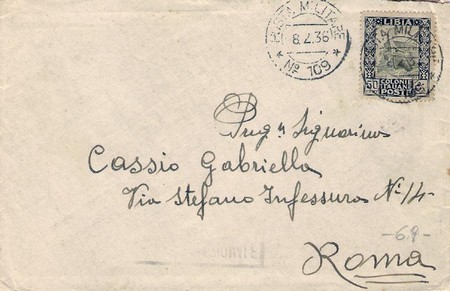 POSTA MILITARE
8.4.36
* No 109 *
LIBIA
50 COLONIE ITALIANE POSTE C.
Preg. Signorina
Cassio Gabriella
Via Stefano Infessura No 14
-69-
Roma